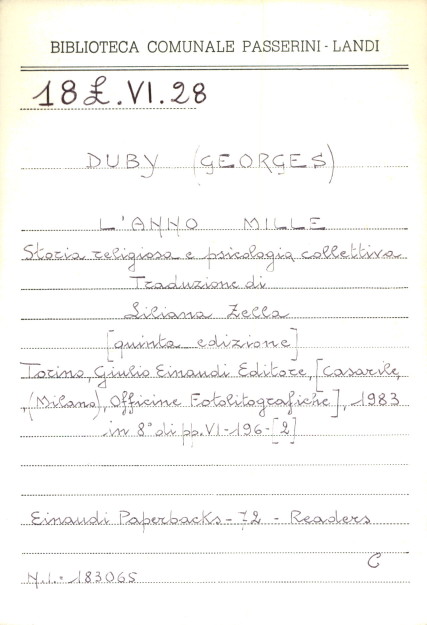 BIBLIOTECA COMUNALE PASSERINI - LANDI
18 £.VI.28
DUBY (GEORGES)
L'ANNO MILLE
Storia religiosa e psicologia collettiva
Traduzione di
Liliana Zella
[quinta edizione]
Torino, Giulio Einaudi Editore, [Casarile,
(Milano), Officine Fotolitografiche], 1983
in 8° di pp. VI-196-[2]
Einaudi Paperbacks - 72 - Readers
C
N.I. - 183065